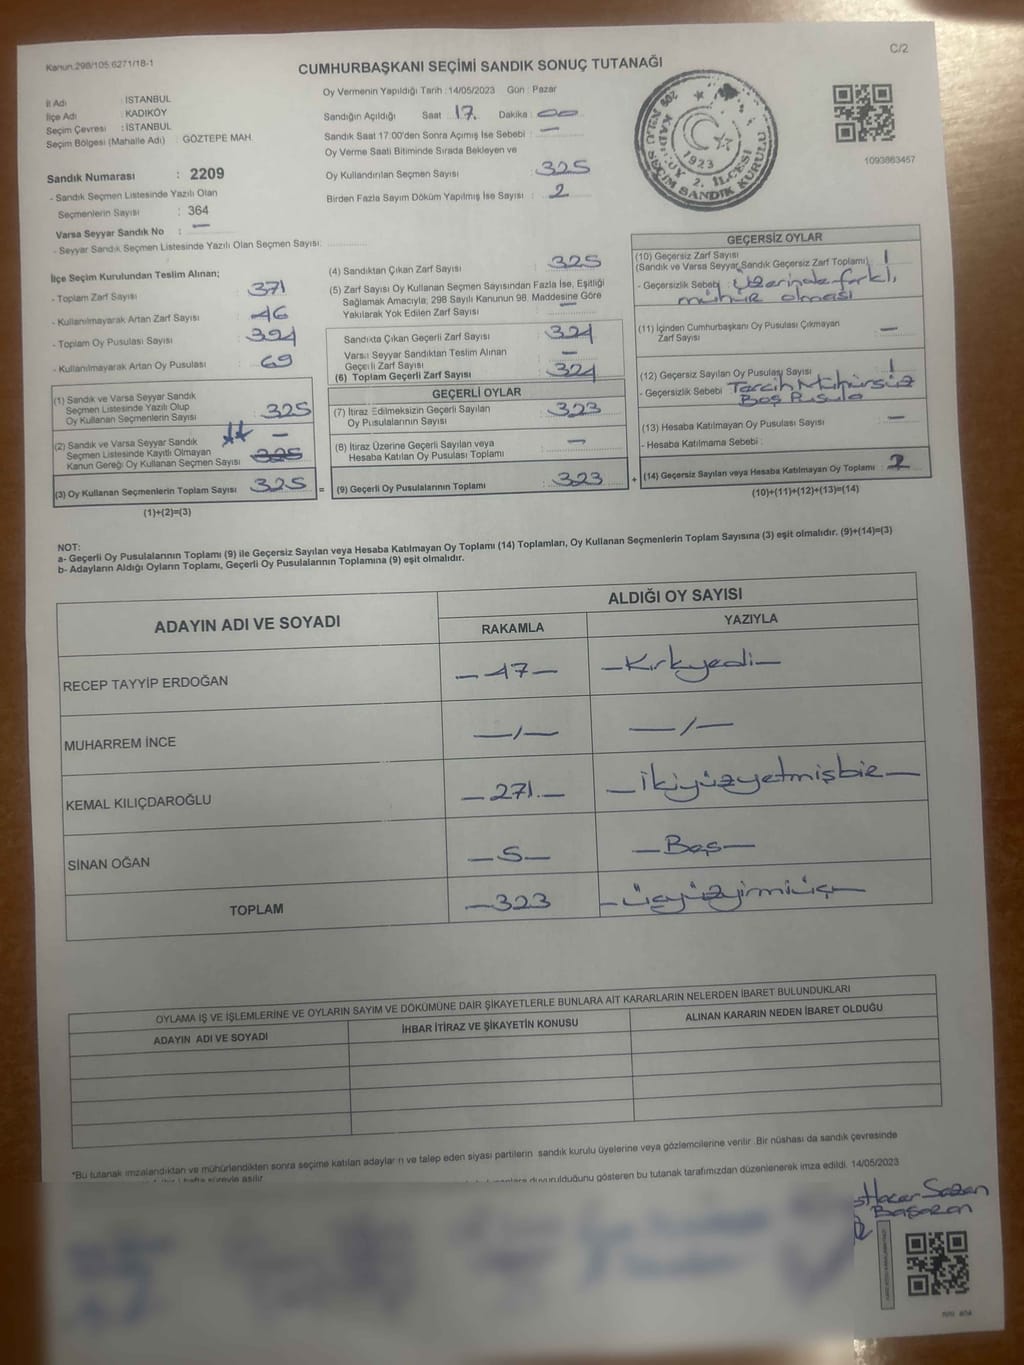 Kanun.298/105.6271/18-1
C/2
CUMHURBAŞKANI SEÇİMİ SANDIK SONUÇ TUTANAĞI
İl Adı : İSTANBUL
İlçe Adı : KADIKÖY
Seçim Çevresi : İSTANBUL
Seçim Bölgesi (Mahalle Adı) : GÖZTEPE MAH.
Sandık Numarası : 2209
- Sandık Seçmen Listesinde Yazılı Olan
Seçmenlerin Sayısı : 364
Varsa Seyyar Sandık No : —
- Seyyar Sandık Seçmen Listesinde Yazılı Olan Seçmen Sayısı:
Oy Vermenin Yapıldığı Tarih : 14/05/2023 Gün : Pazar
Sandığın Açıldığı Saat 17. Dakika : 00
Sandık Saat 17:00'den Sonra Açımış İse Sebebi : —
Oy Verme Saati Bitiminde Sırada Bekleyen ve
Oy Kullandırılan Seçmen Sayısı : 325
Birden Fazla Sayım Döküm Yapılmış İse Sayısı : 2
KADIKÖY 2. İLÇESİ
1923
SEÇİM SANDIK KURULU
1093863457
İlçe Seçim Kurulundan Teslim Alınan;
- Toplam Zarf Sayısı : 371
- Kullanılmayarak Artan Zarf Sayısı : 46
- Toplam Oy Pusulası Sayısı : 394
- Kullanılmayarak Artan Oy Pusulası : 69
(1) Sandık ve Varsa Seyyar Sandık
Seçmen Listesinde Yazılı Olup
Oy Kullanan Seçmenlerin Sayısı : 325
(2) Sandık ve Varsa Seyyar Sandık
Seçmen Listesinde Kayıtlı Olmayan
Kanun Gereği Oy Kullanan Seçmen Sayısı — 325
(3) Oy Kullanan Seçmenlerin Toplam Sayısı : 325 =
(1)+(2)=(3)
(4) Sandıktan Çıkan Zarf Sayısı : 325
(5) Zarf Sayısı Oy Kullanan Seçmen Sayısından Fazla İse, Eşitliği
Sağlamak Amacıyla; 298 Sayılı Kanunun 98. Maddesine Göre
Yakılarak Yok Edilen Zarf Sayısı : —
Sandıkta Çıkan Geçerli Zarf Sayısı : 324
Varsa Seyyar Sandıktan Teslim Alınan
Geçerli Zarf Sayısı : —
(6) Toplam Geçerli Zarf Sayısı : 324
GEÇERLİ OYLAR
(7) İtiraz Edilmeksizin Geçerli Sayılan
Oy Pusulalarının Sayısı : 323
(8) İtiraz Üzerine Geçerli Sayılan veya
Hesaba Katılan Oy Pusulası Toplamı : —
(9) Geçerli Oy Pusulalarının Toplamı : 323 +
GEÇERSİZ OYLAR
(10) Geçersiz Zarf Sayısı
(Sandık ve Varsa Seyyar Sandık Geçersiz Zarf Toplamı) : 1
- Geçersizlik Sebebi : Üzerinde farklı
mühür olması
(11) İçinden Cumhurbaşkanı Oy Pusulası Çıkmayan
Zarf Sayısı : —
(12) Geçersiz Sayılan Oy Pusulası Sayısı : 1
- Geçersizlik Sebebi Tercih Mühürsüz
Boş Pusula
(13) Hesaba Katılmayan Oy Pusulası Sayısı : —
- Hesaba Katılmama Sebebi :
(14) Geçersiz Sayılan veya Hesaba Katılmayan Oy Toplamı : 2
(10)+(11)+(12)+(13)=(14)
NOT:
a- Geçerli Oy Pusulalarının Toplamı (9) ile Geçersiz Sayılan veya Hesaba Katılmayan Oy Toplamı (14) Toplamları, Oy Kullanan Seçmenlerin Toplam Sayısına (3) eşit olmalıdır. (9)+(14)=(3)
b- Adayların Aldığı Oyların Toplamı, Geçerli Oy Pusulalarının Toplamına (9) eşit olmalıdır.
ADAYIN ADI VE SOYADI
ALDIĞI OY SAYISI
RAKAMLA YAZIYLA
RECEP TAYYİP ERDOĞAN —47— —Kırkyedi—
MUHARREM İNCE —/— —/—
KEMAL KILIÇDAROĞLU —271.— —İkiyüzyetmişbir—
SİNAN OĞAN —5— —Beş—
TOPLAM —323 —üçyüzyirmiüç—
OYLAMA İŞ VE İŞLEMLERİNE VE OYLARIN SAYIM VE DÖKÜMÜNE DAİR ŞİKAYETLERLE BUNLARA AİT KARARLARIN NELERDEN İBARET BULUNDUKLARI
ADAYIN ADI VE SOYADI İHBAR İTİRAZ VE ŞİKAYETİN KONUSU ALINAN KARARIN NEDEN İBARET OLDUĞU
*Bu tutanak imzalandıktan ve mühürlendikten sonra seçime katılan adayların ve talep eden siyasi partilerin sandık kurulu üyelerine veya gözlemcilerine verilir. Bir nüshası da sandık çevresinde
hafta süreyle asılır.
duyurulduğunu gösteren bu tutanak tarafımızdan düzenlenerek imza edildi. 14/05/2023
Hacer Sazan
Başaran